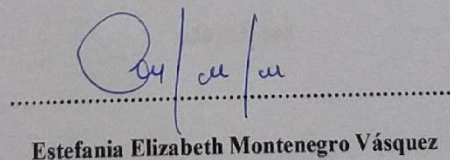 Estefania Elizabeth Montenegro Vásquez